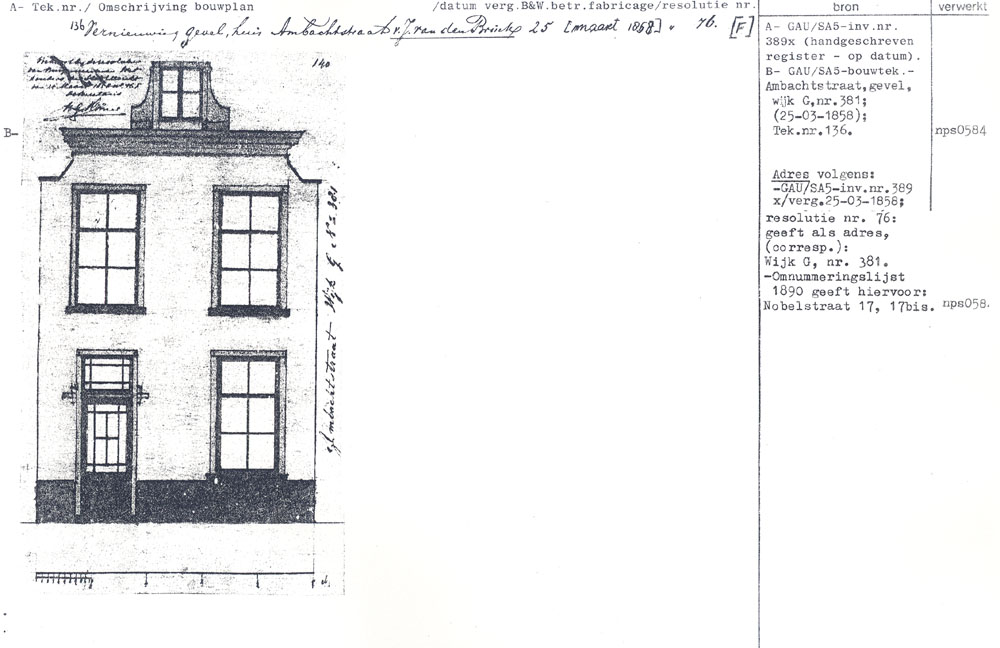 A- Tek.nr./ Omschrijving bouwplan /datum verg.B&W.betr.fabricage/resolutie nr.
bron
verwerkt
136 Vernieuwing gevel, huis Ambachtstraat v. J. van den Brink 25 [maart 1858] " 76. [F]
140
B-
Ambachtstraat Wijk G No 381
el.
A- GAU/SA5-inv.nr.
389x (handgeschreven
register - op datum).
B- GAU/SA5-bouwtek.-
Ambachtstraat,gevel,
wijk G,nr.381;
(25-03-1858);
Tek.nr.136.
nps0584
Adres volgens:
-GAU/SA5-inv.nr.389
x/verg.25-03-1858;
resolutie nr. 76:
geeft als adres,
(corresp.):
Wijk G, nr. 381.
-Omnummeringslijst
1890 geeft hiervoor:
Nobelstraat 17, 17bis.
nps058.